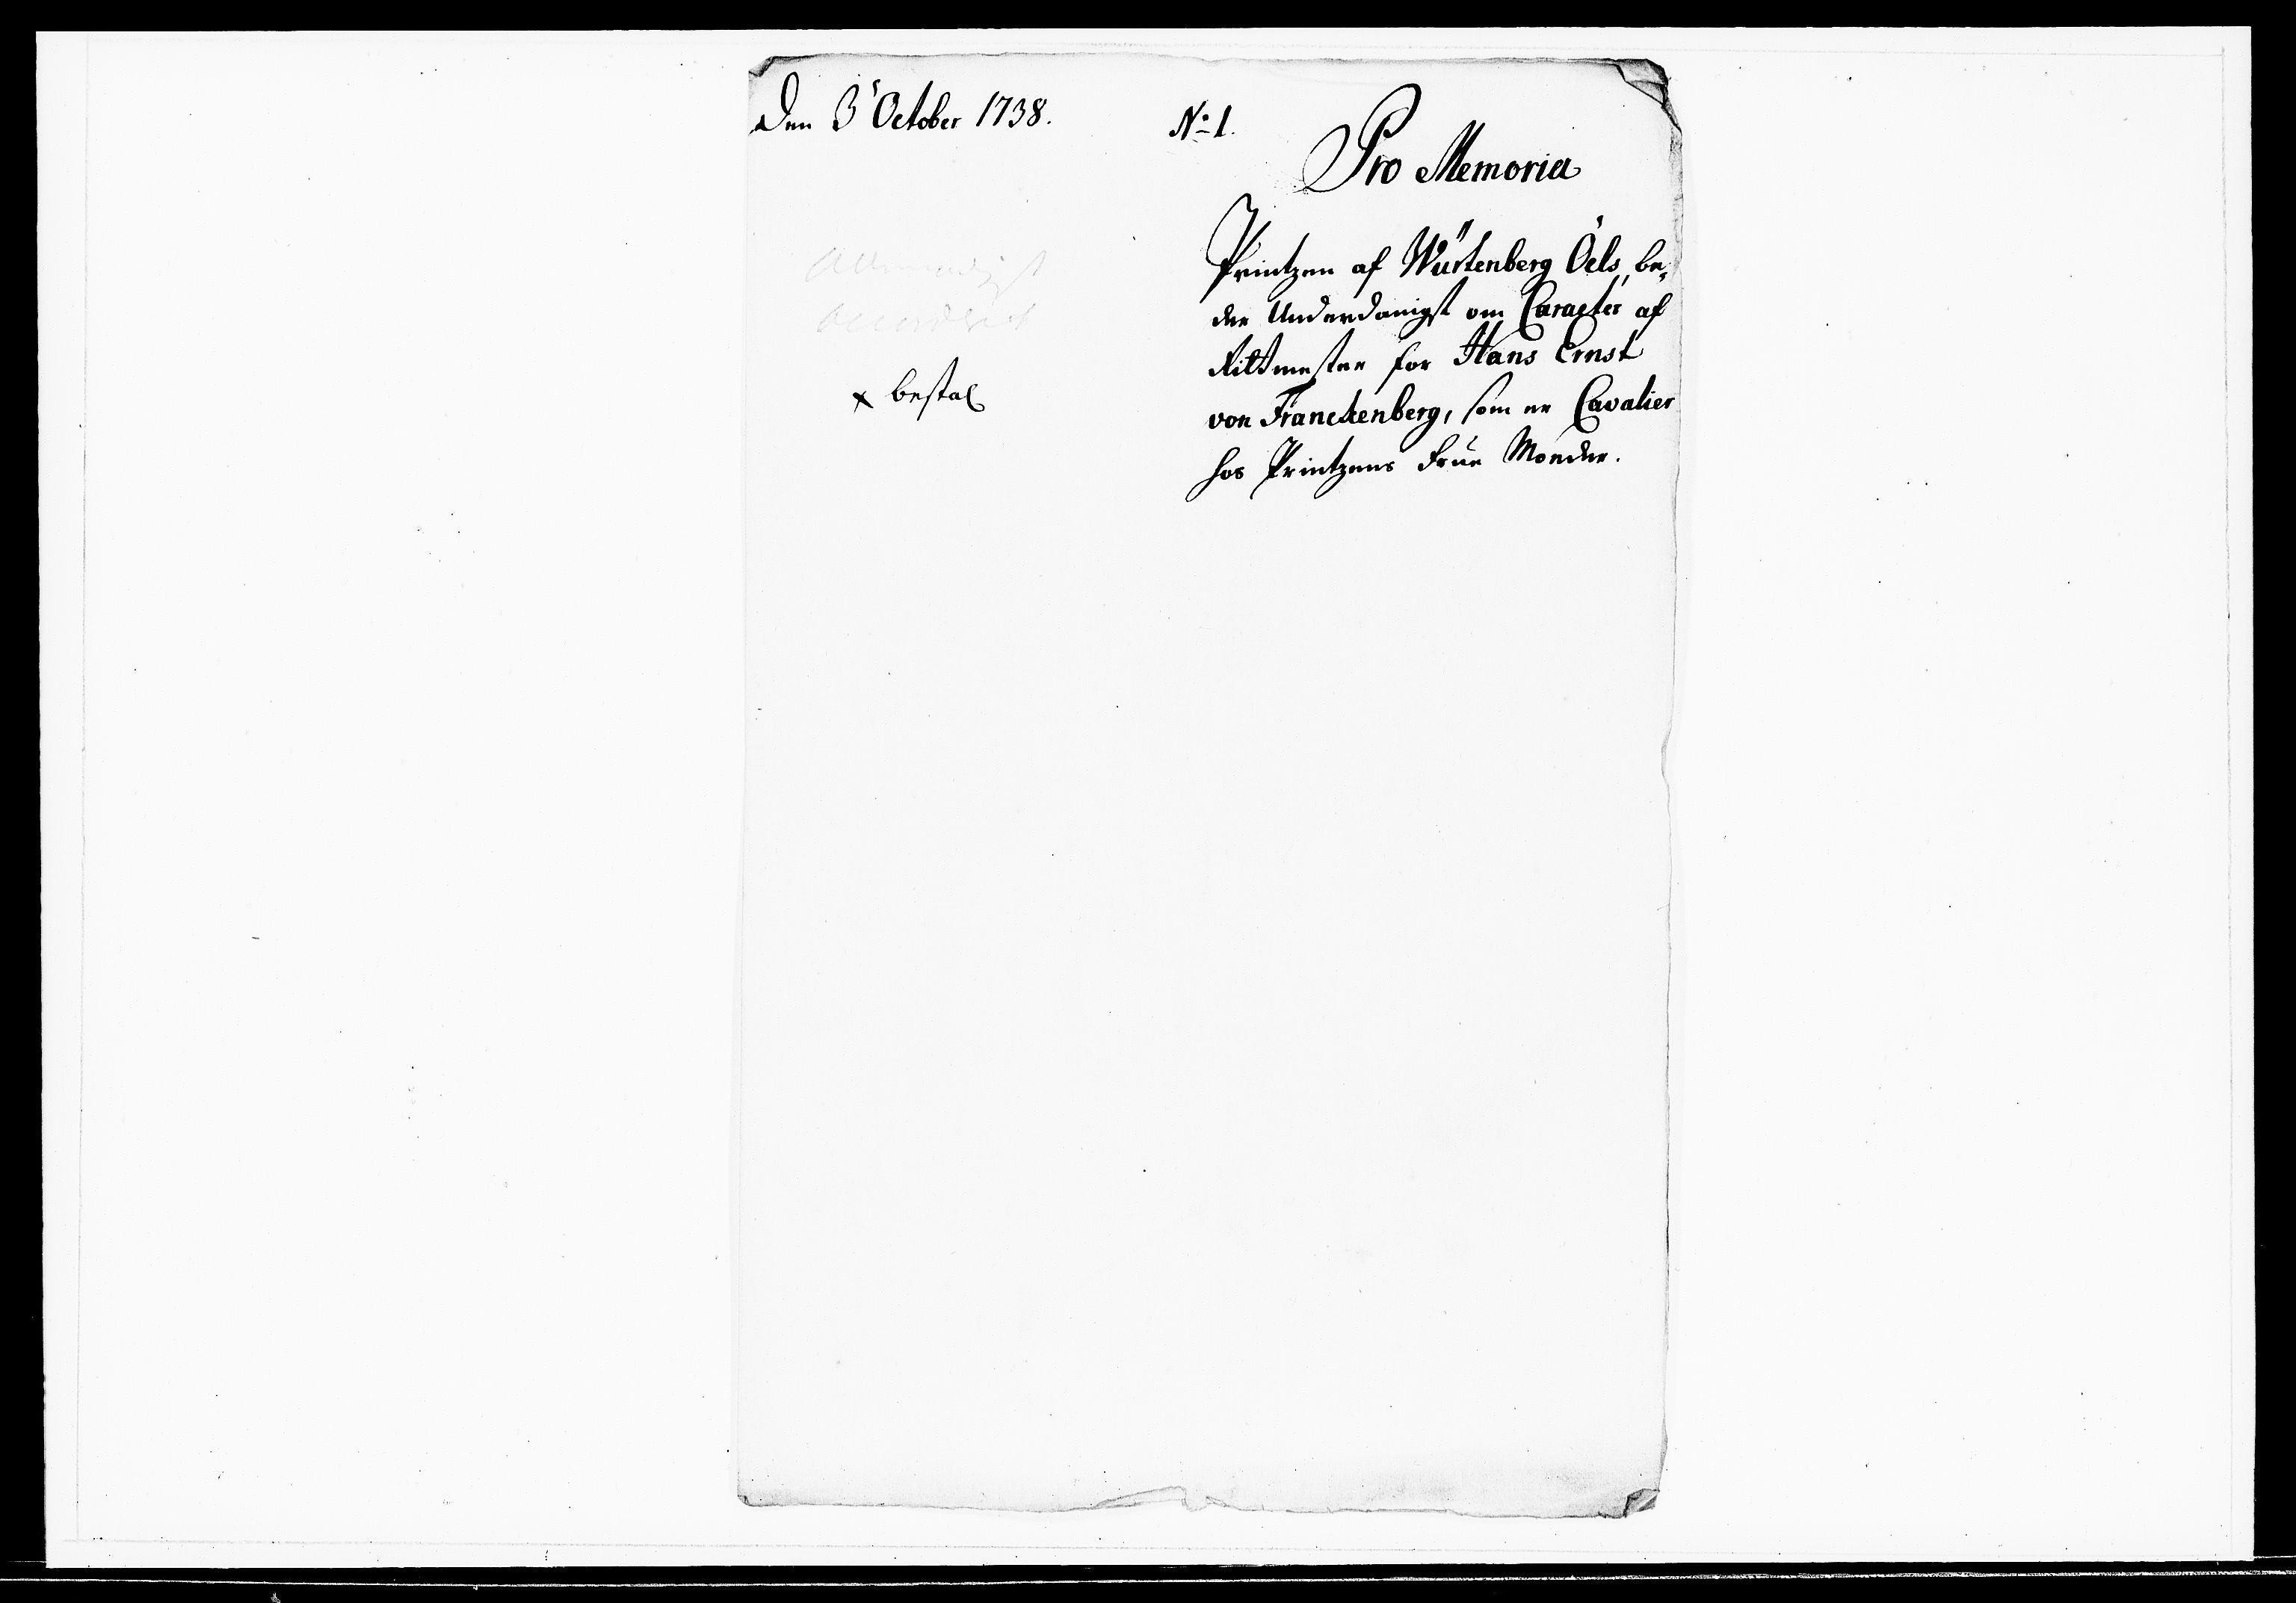 Den 3' October 1738.
No 1.
Pro Memoria
Printzen af Würtenberg Öels, be-
der Underdanigst om Caracter af
Rittmester for Hans Ernst
von Franckenberg, som er Cavalier
hos Printzens Frue Moeder.
Allernaadigst
bevilget
x bestal